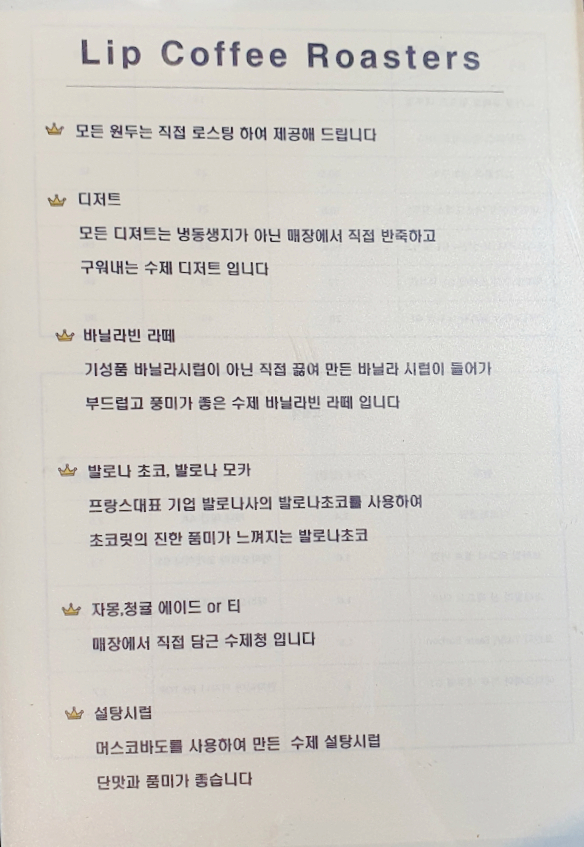 Lip Coffee Roasters
모든 원두는 직접 로스팅 하여 제공해 드립니다
디저트
모든 디져트는 냉동생지가 아닌 매장에서 직접 반죽하고
구워내는 수제 디저트 입니다
바닐라빈 라떼
기성품 바닐라시럽이 아닌 직접 끓여 만든 바닐라 시럽이 들어가
부드럽고 풍미가 좋은 수제 바닐라빈 라떼 입니다
발로나 초코, 발로나 모카
프랑스대표 기업 발로나사의 발로나초코를 사용하여
초코릿의 진한 품미가 느껴지는 발로나초코
자몽,청귤 에이드 or 티
매장에서 직접 담근 수제청 입니다
설탕시럽
머스코바도를 사용하여 만든 수제 설탕시럽
단맛과 품미가 좋습니다